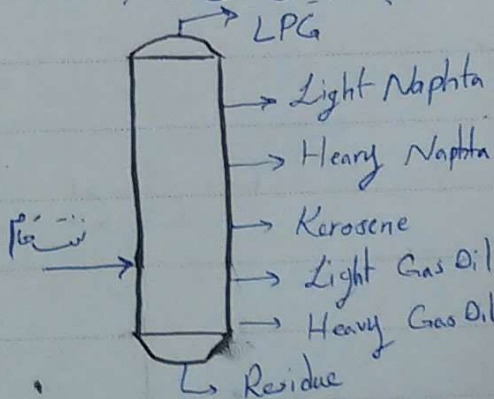 LPG
Light Naphta
Heavy Naphta
Kerosene
نفت خام
Light Gas Oil
Heavy Gas Oil
Residue